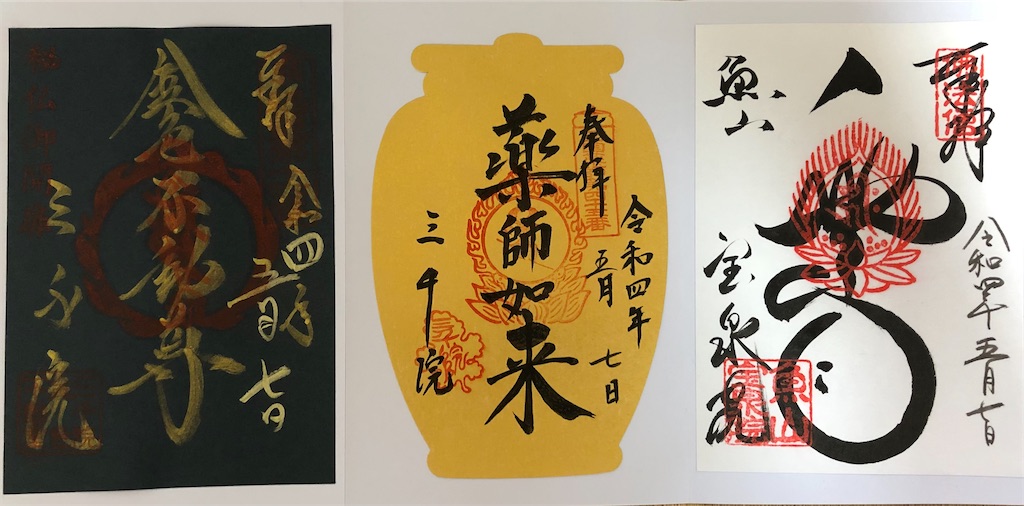 奉拝
令四年
五月七日
金色不動尊
三千院
奉拝
令和四年
五月七日
薬師如来
三千院
奉拝
令和四年五月七日
魚山
宝泉院
魚山